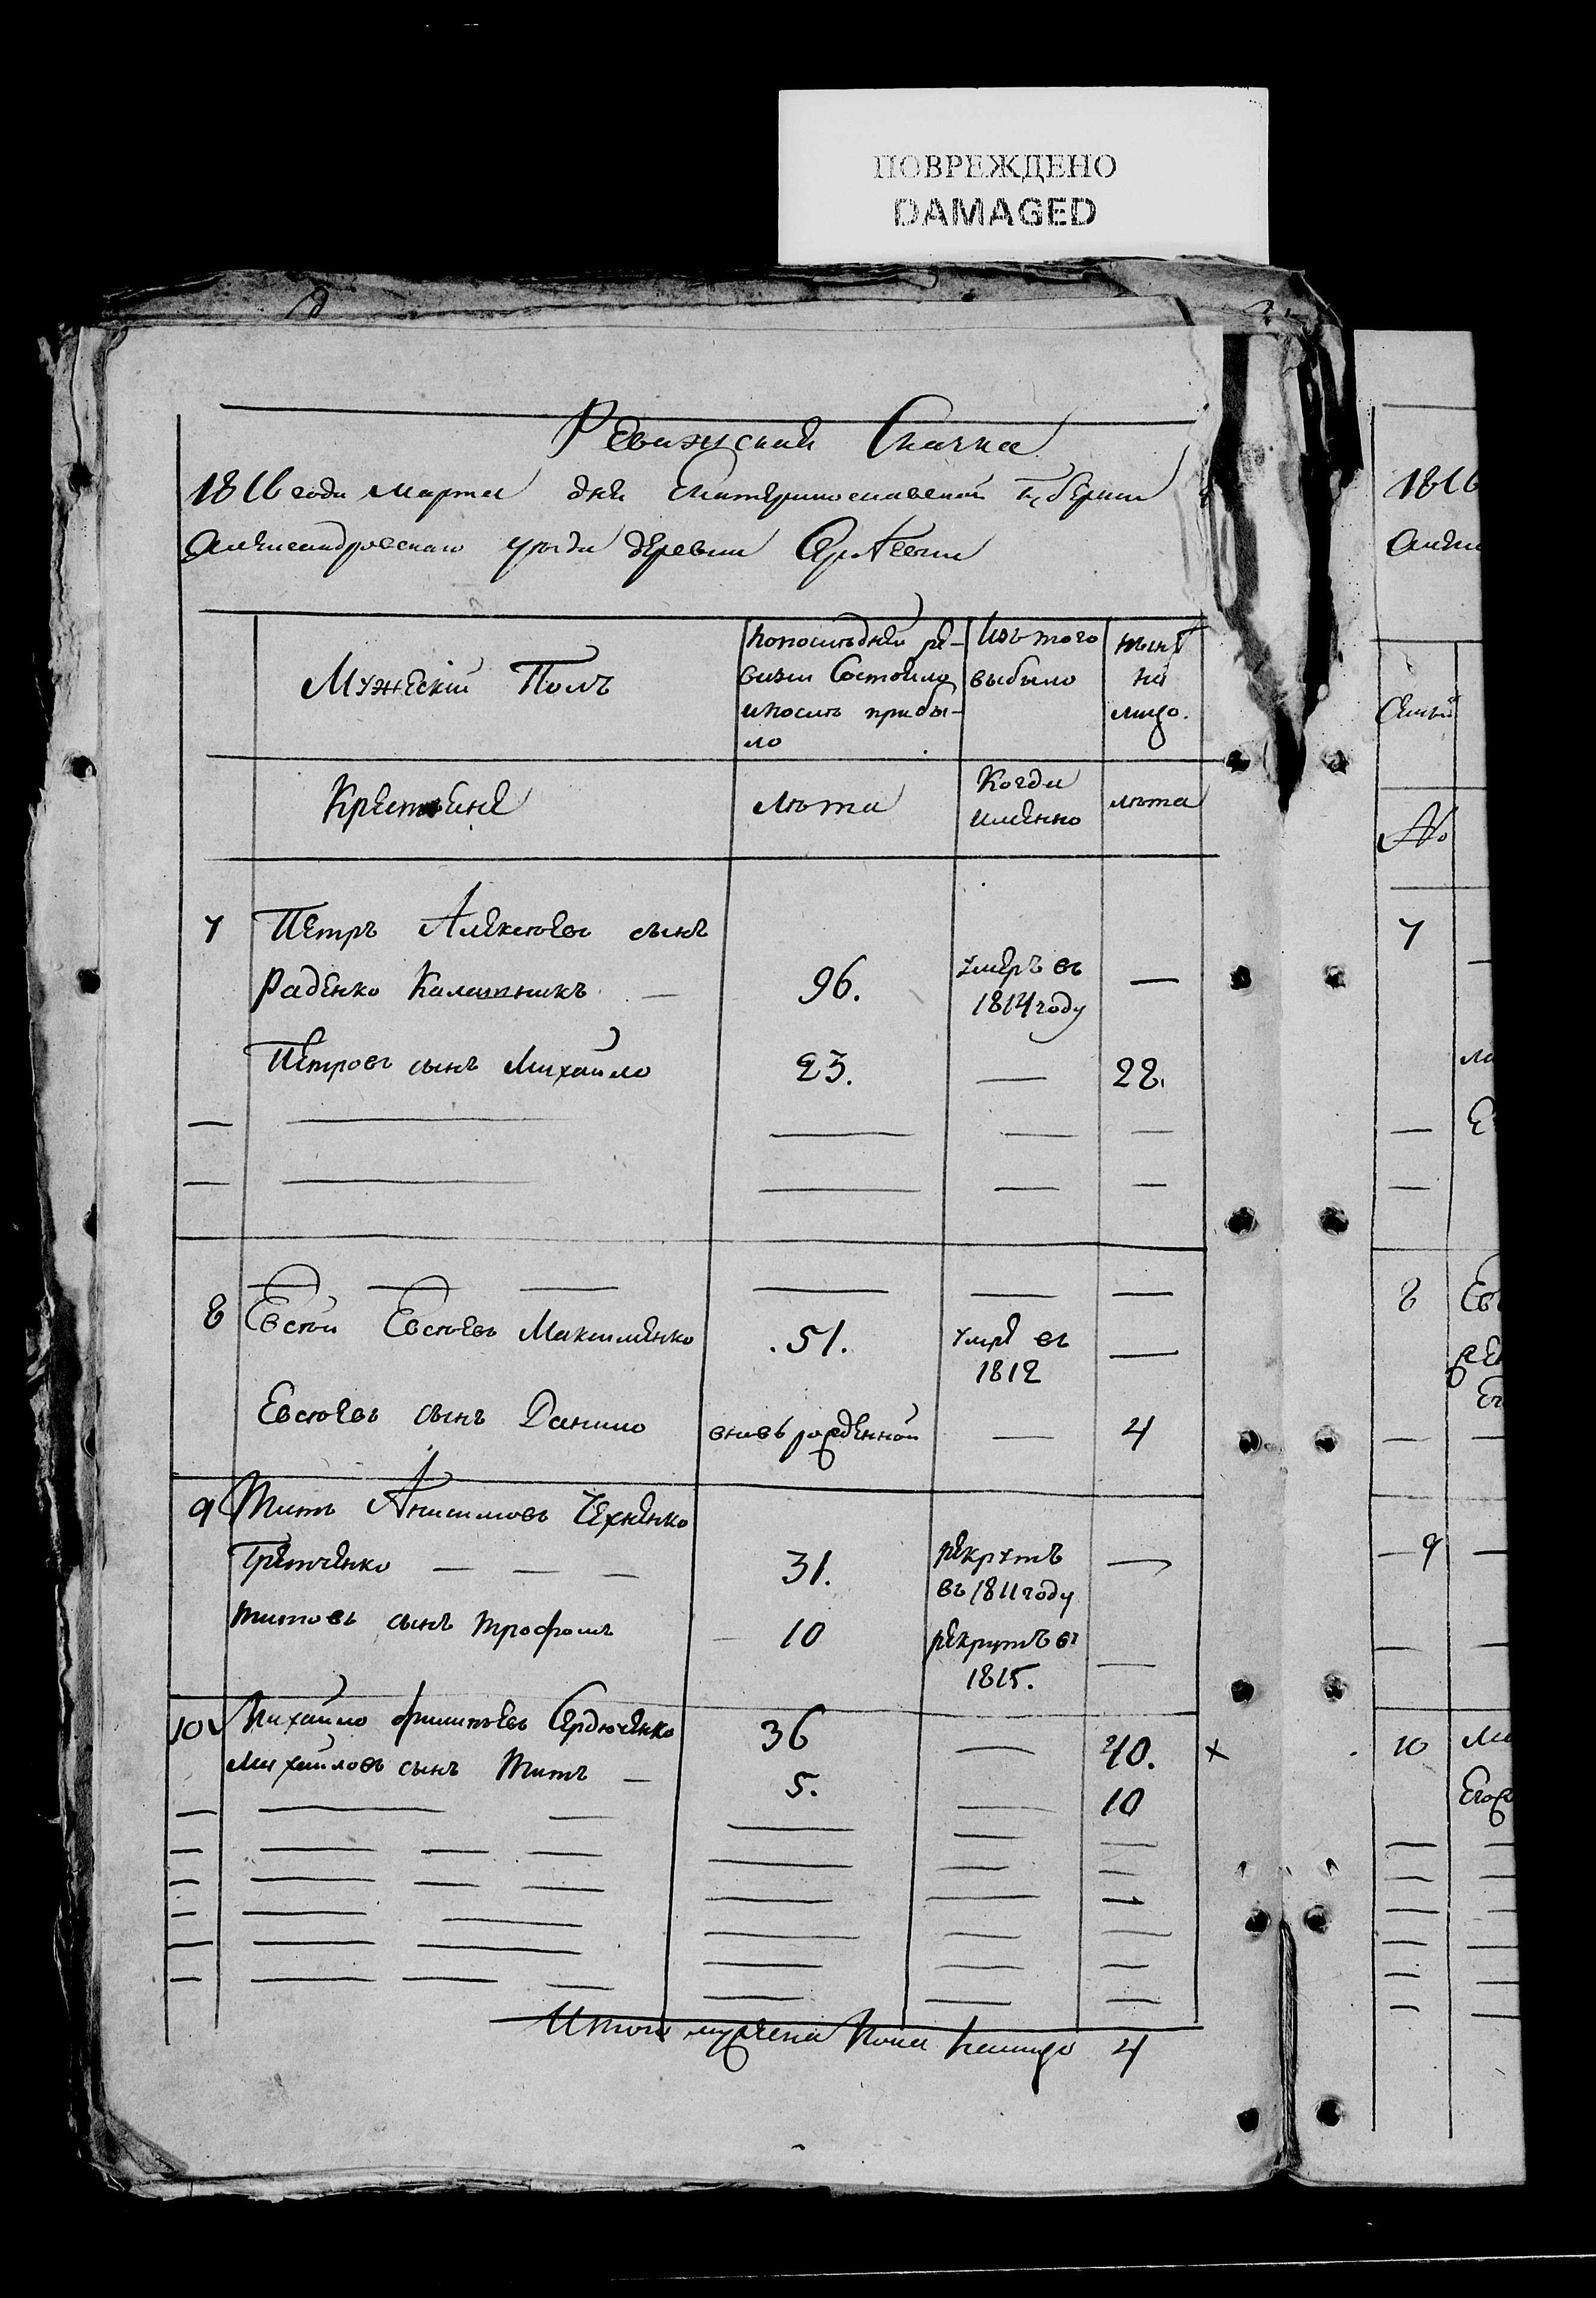 ПОВРЕЖДЕНО
DAMAGED
Ревижская Сказка
1816 года марта дня Екатеринославской Губернии
Александровскаго уезда деревни
Мужескiй Полъ
Попоследней ре-
визии Состояло
ипосле прибы-
ло
Изъ того
выбыло
ныне
на
лицо.
Крестьяне
лѣта
Когда
именно
лѣта
7 Петръ Алексѣевъ сынъ
Раденко Калашникъ — 96. умеръ въ 1814 году —
Петровъ сынъ Михайло 23. — 28.
8 Евсѣй Евсѣевъ Максименко .51. умре въ 1812 —
Евсѣевъ сынъ Данило вновь рожденной — 4
9 Титъ Анисимовъ
Гретченко — — — 31. рекрутъ въ 1811 году —
титовъ сынъ трофимъ 10 рекрутъ въ 1815. —
10 Михайло филипьевъ Сердюченко 36 — 40. x
Михайловъ сынъ Титъ — 5. — 10
Итого мужеска пола налицо 4
1816
Семьи
№
7
8
9
10